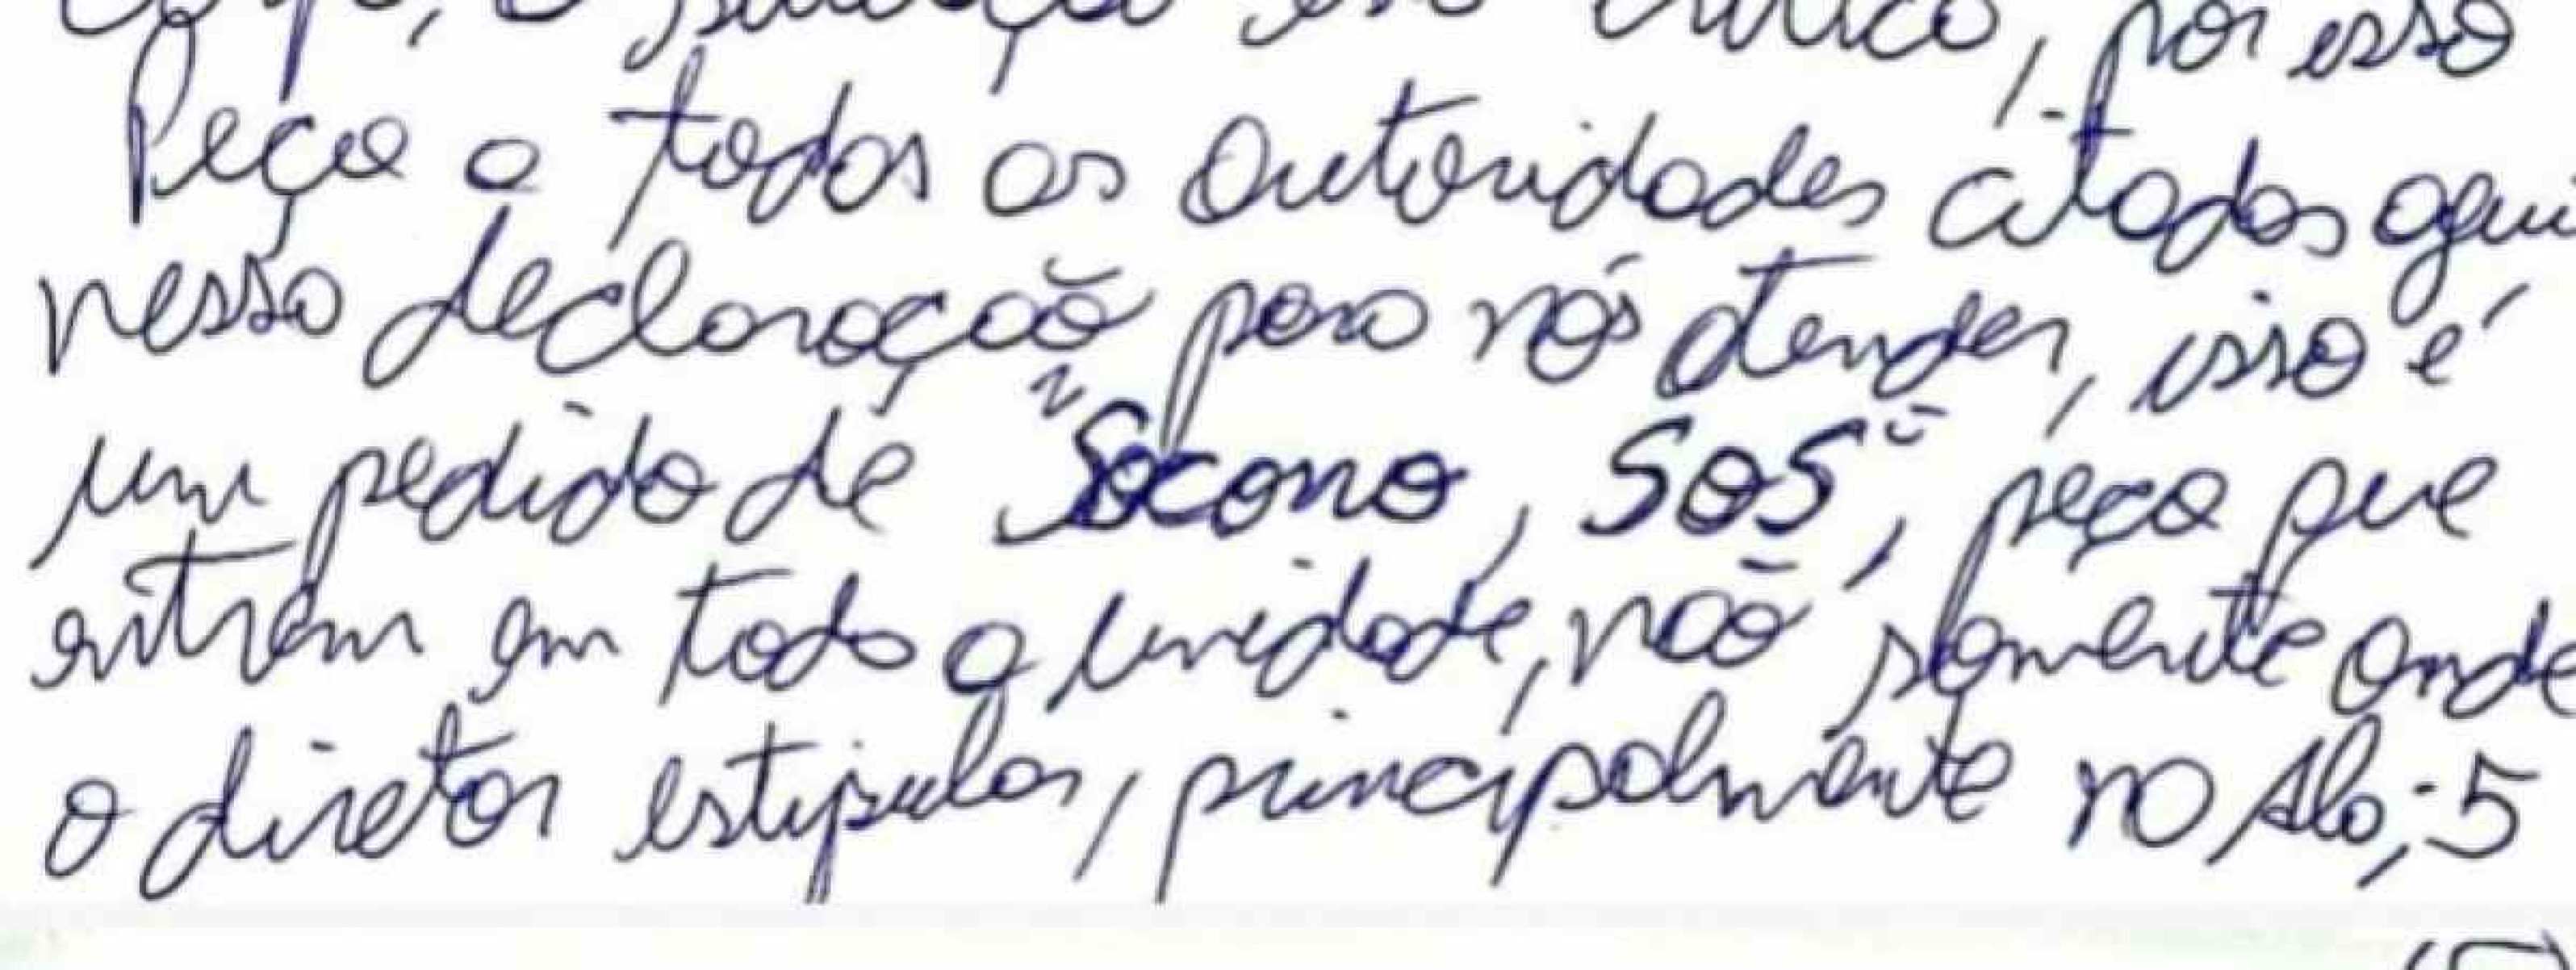 a situação esta critico, por esso
Peço a todas as autoridades citadas aqui
nessa declaração para nós atender, isso é
um pedido de "Socorro, SOS", peço que
entrem em toda a unidade, não somente onde
o diretor estipular, principalmente no Ala,-5